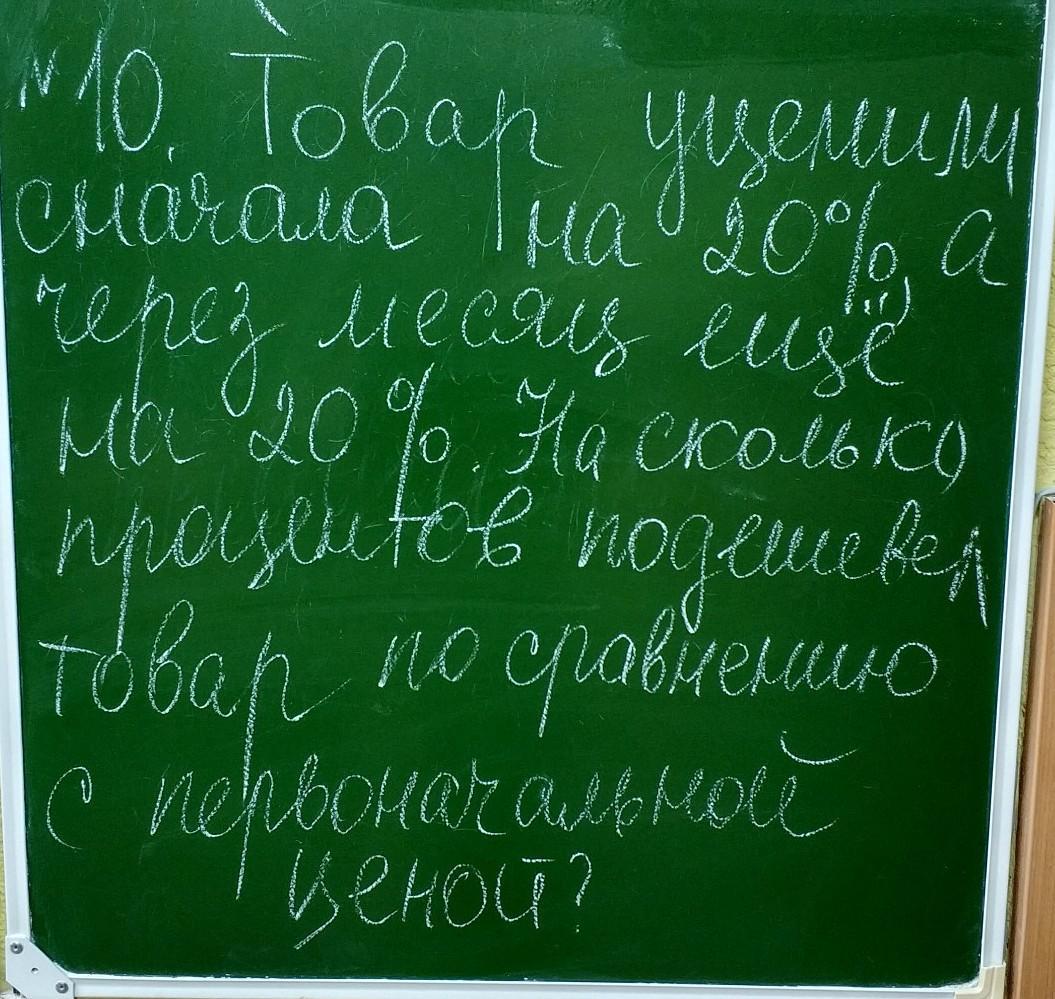 №10. Товар уценили
сначала на 20%, а
через месяц ещё
на 20%. На сколько
процентов подешевел
товар по сравнению
с первоначальной
ценой?